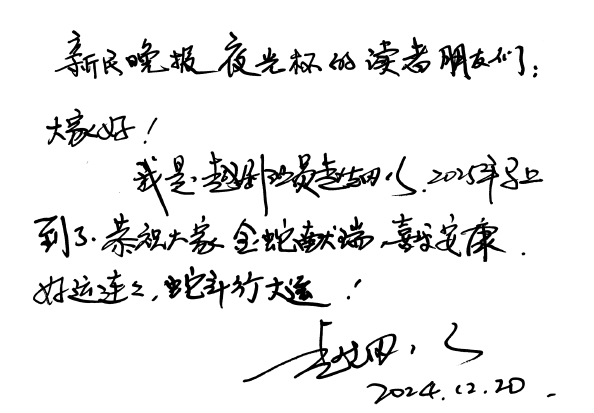 新民晚报夜光杯的读者朋友们:
大家好!
我是越剧演员赵志刚,2025年马上
到了.恭祝大家金蛇献瑞,喜乐安康.
好运连连,蛇年行大运!
2024.12.20.